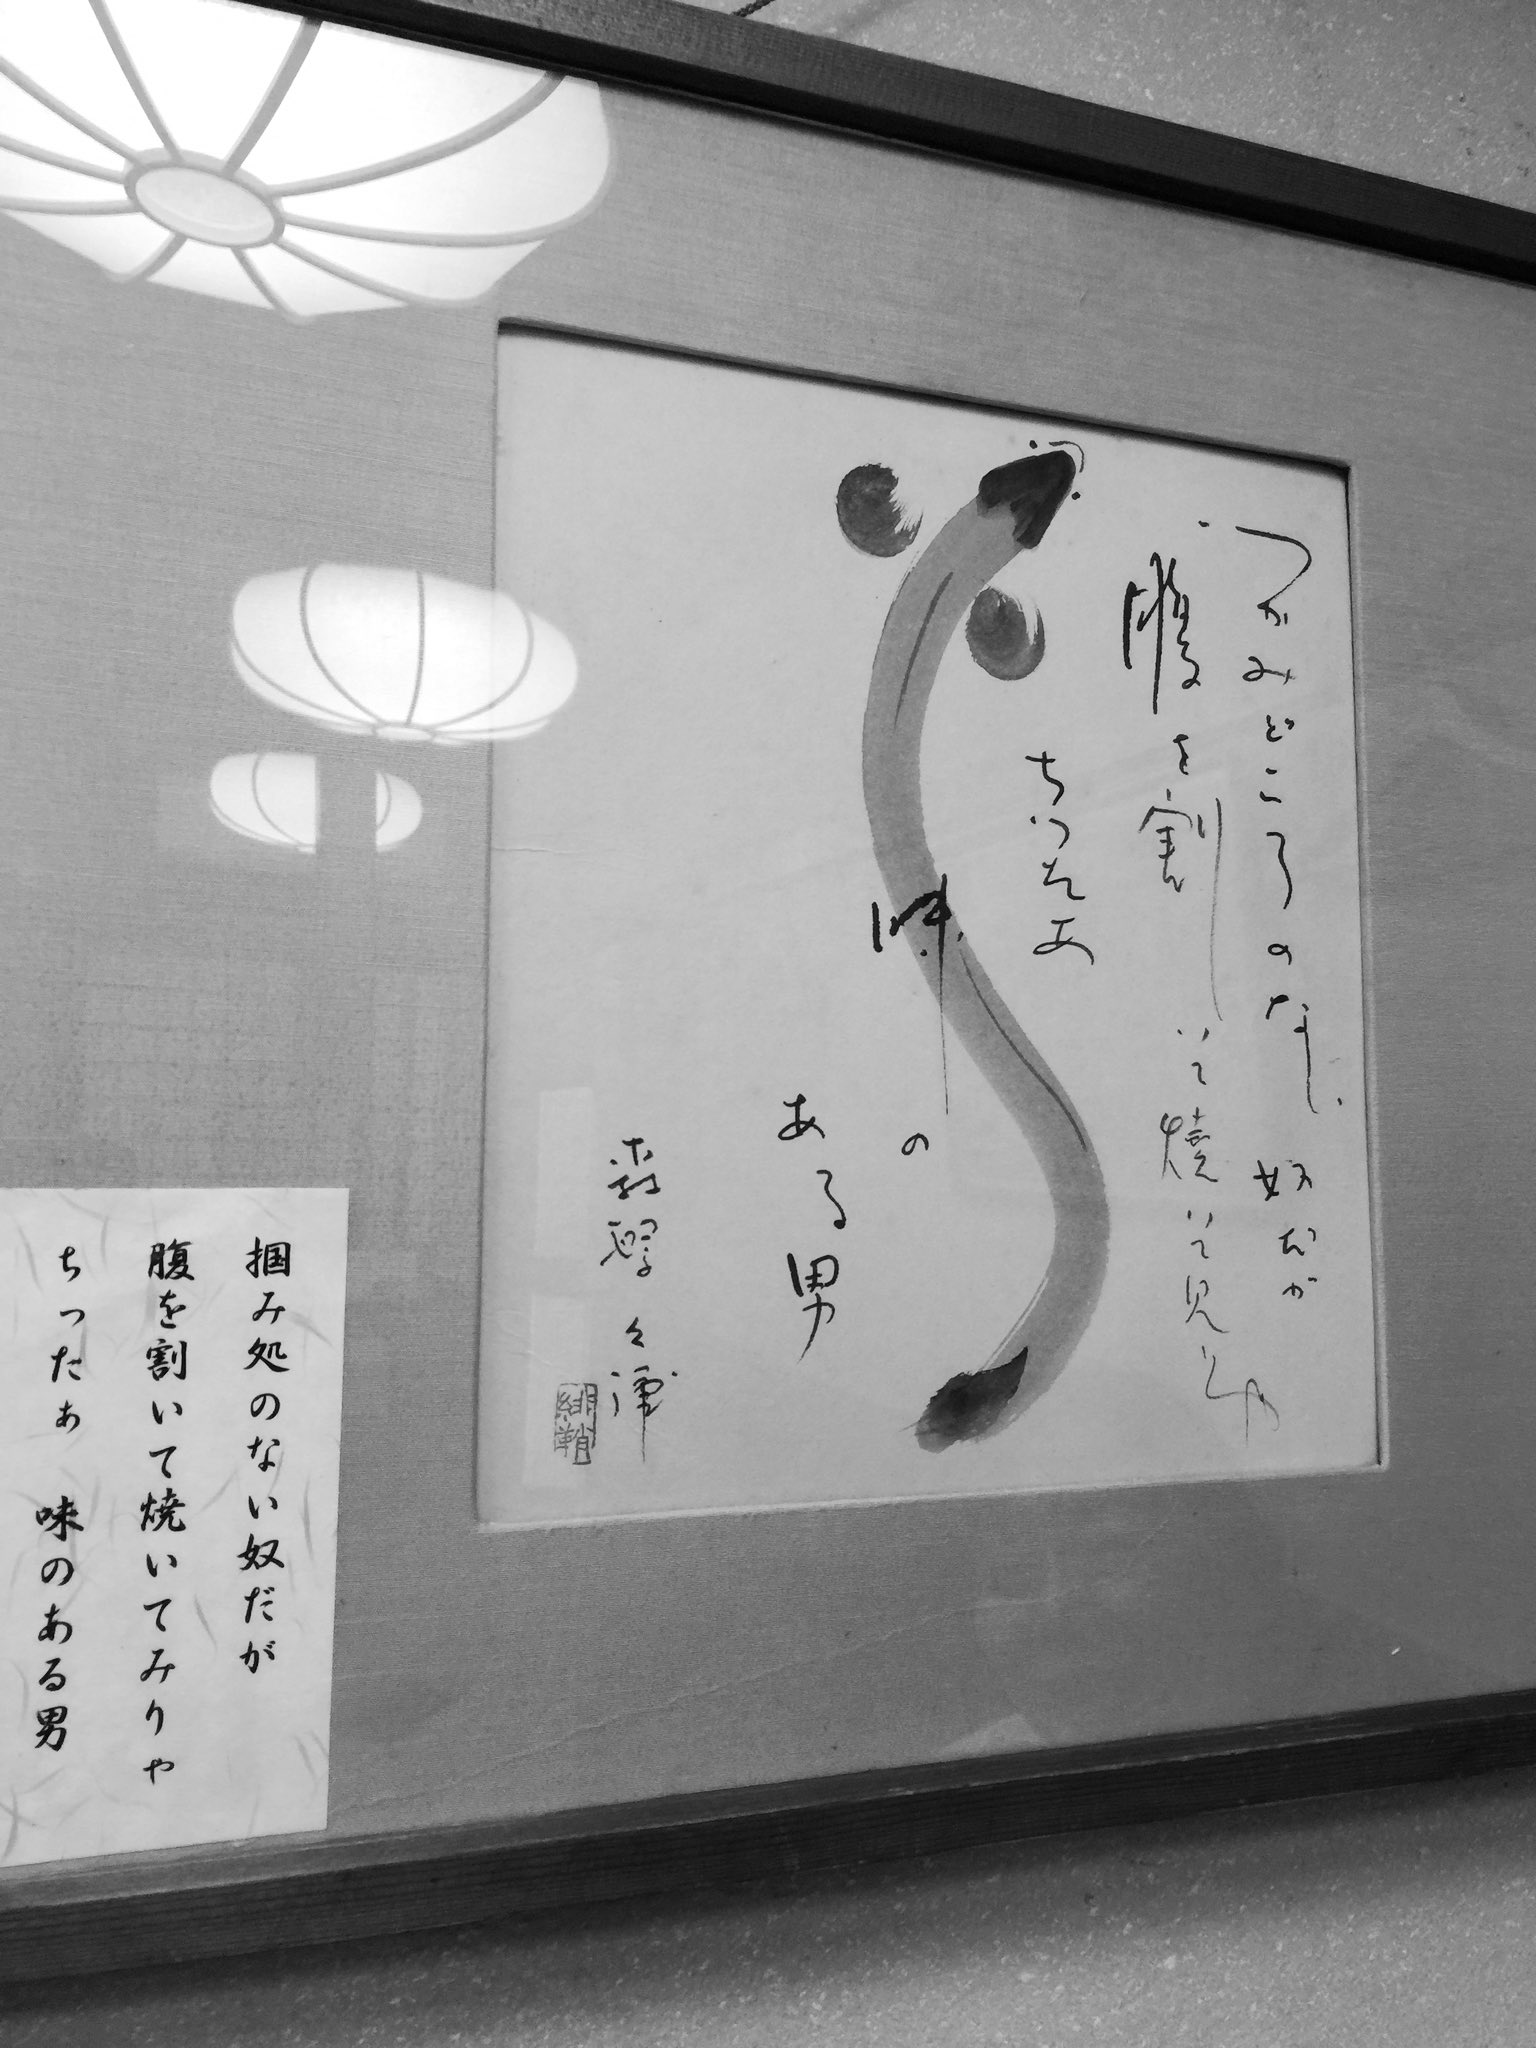 つかみどころのない奴だが
腹を割いて焼いて見りや
ちつたあ
味
の
ある男
掴み処のない奴だが
腹を割いて焼いてみりゃ
ちったぁ 味のある男